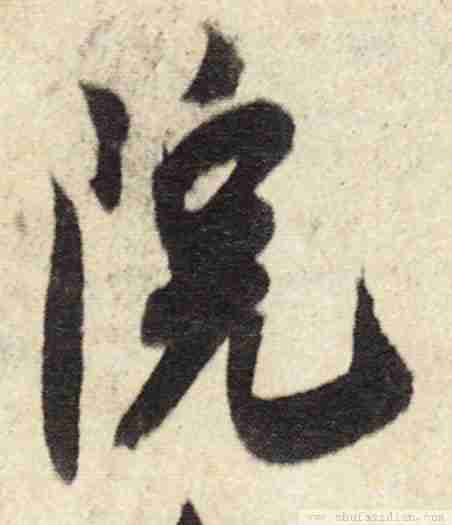 院
www.shufazidian.com